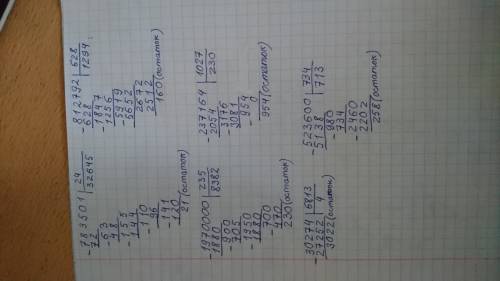 -783501 | 24
72 | 32645
-63
48
-155
144
-110
96
-141
120
21 (остаток)
-812792 | 628
628 | 1294
-1847
1256
-5919
5652
-2672
2512
160 (остаток)
-1970000 | 235
1880 | 8382
-900
705
-1950
1880
-700
470
230 (остаток)
-237164 | 1027
2054 | 230
-3176
3081
-954
0
954 (остаток)
-30274 | 6813
27252 | 4
3022 (остаток)
-523600 | 734
5138 | 713
-980
734
-2460
2202
258 (остаток)